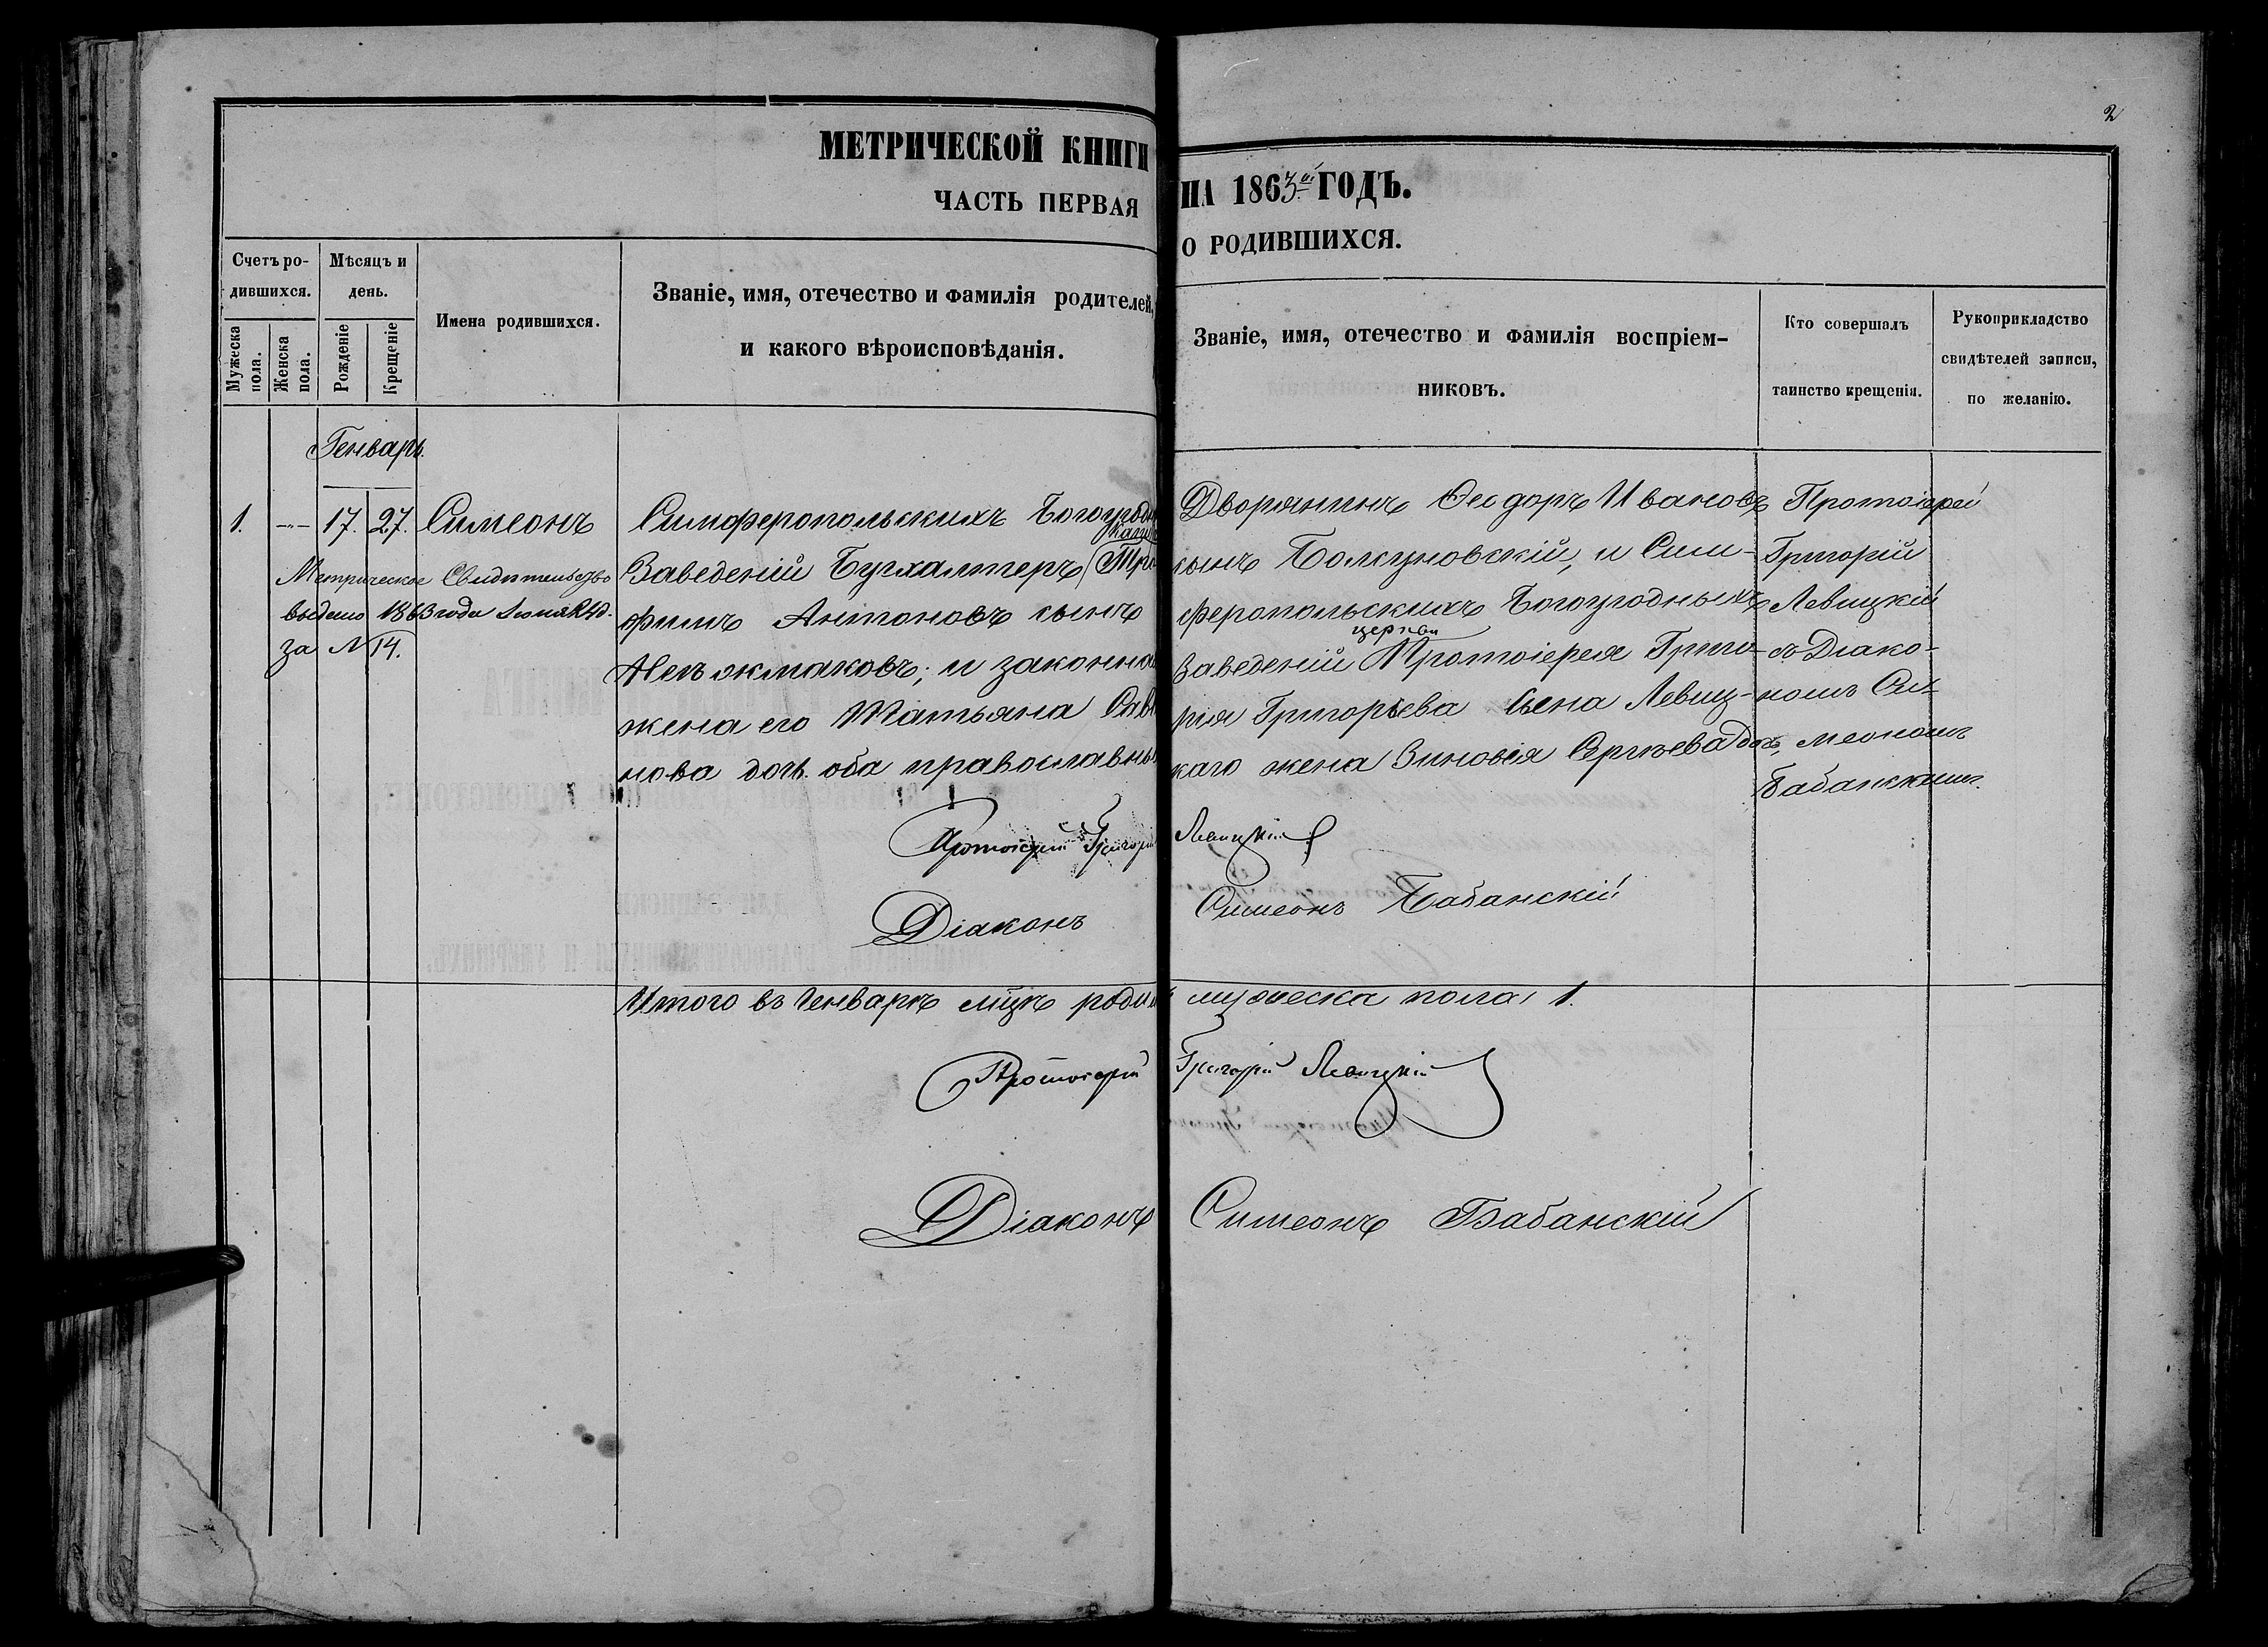 2
МЕТРИЧЕСКОЙ КНИГИ
НА 1863й ГОДЪ.
ЧАСТЬ ПЕРВАЯ
О РОДИВШИХСЯ.
Счетъ ро-
дившихся.
Мужеска пола.
Женска пола.
Мѣсяцъ и
день.
Рожденіе
Крещеніе
Имена родившихся.
Званіе, имя, отечество и фамилія родителей,
и какого вѣроисповѣданія.
Званіе, имя, отечество и фамилія воспріем-
никовъ.
Кто совершалъ
таинство крещенія.
Рукоприкладство
свидѣтелей записи,
по желанію.
Генварь.
1. -"- 17. 27. Симеонъ
Метрическое Свидѣтельство
выдано 1863 года
за № 14.
Симферопольскихъ Богоугодн
Заведеній Бухгалтеръ
фимъ Антоновъ сынъ
и законная
жена его Татьяна Сав
нова дочь. оба православны
Дворянинъ Ѳеодоръ Ивановъ
сынъ и Сим-
феропольскихъ Богоугодныхъ
церкви
Заведеній Протоіерея Григо-
рія Григорьева Сына Левиц-
каго жена Зиновія Сергѣева дочь,
Протоіерей
Григорій
Левицкій
съ Діако-
номъ Си-
меономъ
Бабанскимъ.
Протоіерей Григорій Левицкій
Діаконъ Симеонъ Бабанскій
Итого въ Генварѣ мцѣ родил мужеска пола 1.
Протоіерей Григорій Левицкій
Діаконъ Симеонъ Бабанскій